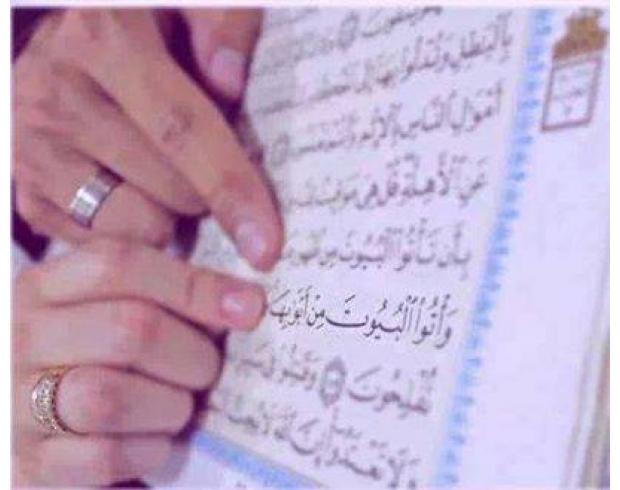 بِٱلْبَٰطِلِ وَتُدْلُوا۟ بِهَآ إِلَى
أَمْوَٰلِ ٱلنَّاسِ بِٱلْإِثْمِ وَأَنتُمْ
عَنِ ٱلْأَهِلَّةِ قُلْ هِىَ مَوَٰقِيتُ
بِأَن تَأْتُوا۟ ٱلْبُيُوتَ مِن
وَأْتُوا۟ ٱلْبُيُوتَ مِنْ أَبْوَٰبِهَا
تُفْلِحُونَ وَقَٰتِلُوا۟ فِى
وَلَا تَعْتَدُوٓا۟ إِنَّ ٱللَّهَ لَا